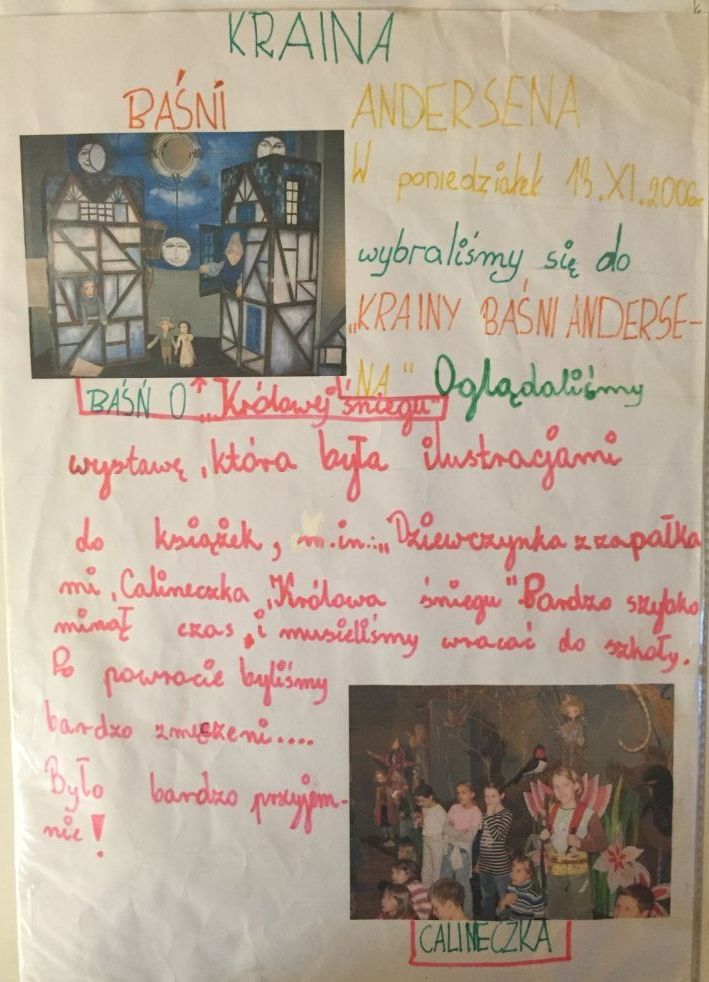 KRAINA
BAŚNI ANDERSENA
W poniedziałek 13.XI.2006r
wybraliśmy się do
„KRAINY BAŚNI ANDERSE-
NA" Oglądaliśmy
BAŚŃ O „Królowej śniegu"
wystawę, która była ilustracjami
do książek, m.in.: „Dziewczynka z zapałka
mi, Calineczka, Królowa śniegu". Bardzo szybko
minął czas, i musieliśmy wracać do szkoły.
Po powrocie byliśmy
bardzo zmęczeni....
Było bardzo przyjem-
nie!
CALINECZKA